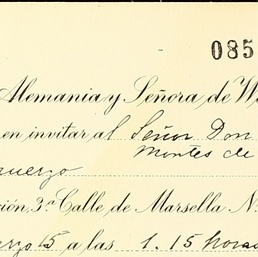 085
Alemania y Señora de W
en invitar al Señor Don
Montes de
muerzo
ión, 3ª Calle de Marsella N
rzo 15 a las 1.15 horas